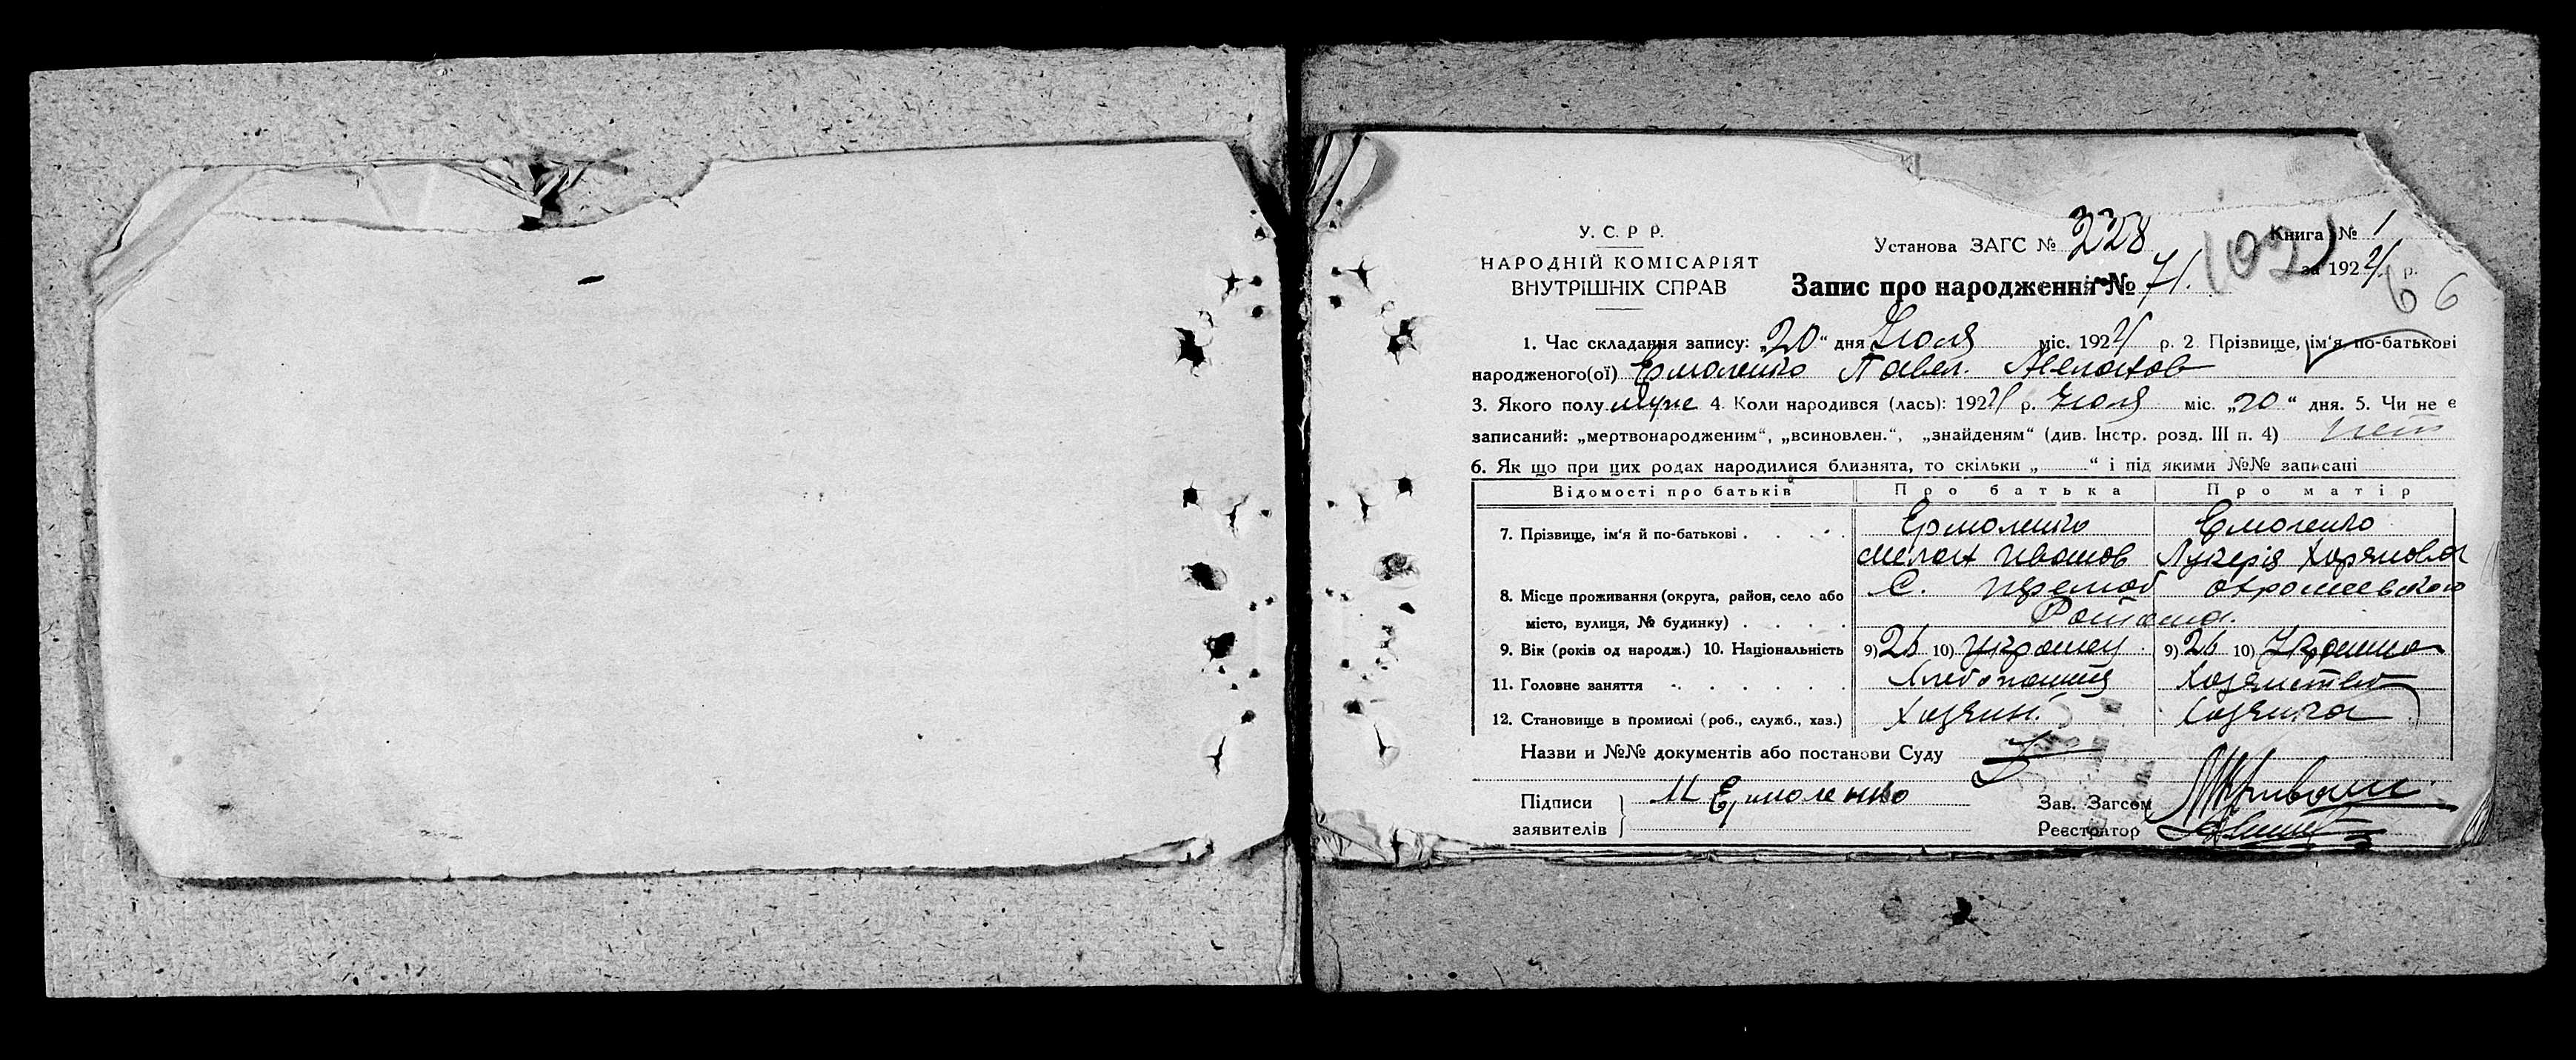 У. С. Р Р.
НАРОДНІЙ КОМІСАРІЯТ
ВНУТРІШНІХ СПРАВ
Установа ЗАГС № 228
Книга № 1
за 1924 р.
102
66
Запис про народження № 71.
1. Час складання запису: „20“ дня Июля міс. 1924 р. 2. Прізвище, ім‘я по-батькові
народженого(ої) Ермоленко Павел.
3. Якого полу муж 4. Коли народився (лась): 1924 р. Июля міс. „20“ дня. 5. Чи не є
записаний: „мертвонародженим“, „всиновлен.“, „знайденям“ (див. Інстр. розд. III п. 4) нет
6. Як що при цих родах народилися близнята, то скільки „ “ і під якими №№ записані
Відомості про батьків Про батька Про матір
7. Прізвище, ім‘я й по-батькові . . . . Ермоленко Ермоленко
Иванов Лукерія
8. Місце проживання (округа, район, село або С.
місто, вулиця, № будинку) . . . .
9. Вік (років од народж.) 10. Національність 9) 26 10) Украинец 9) 26 10)
11. Головне заняття . . . . . . Хлебопашец
12. Становище в промислі (роб., служб., хаз.) Хозяин. Хозяйка
Назви и №№ документів або постанови Суду
Підписи М Ермоленко Зав. Загсом
заявителів Реєстратор